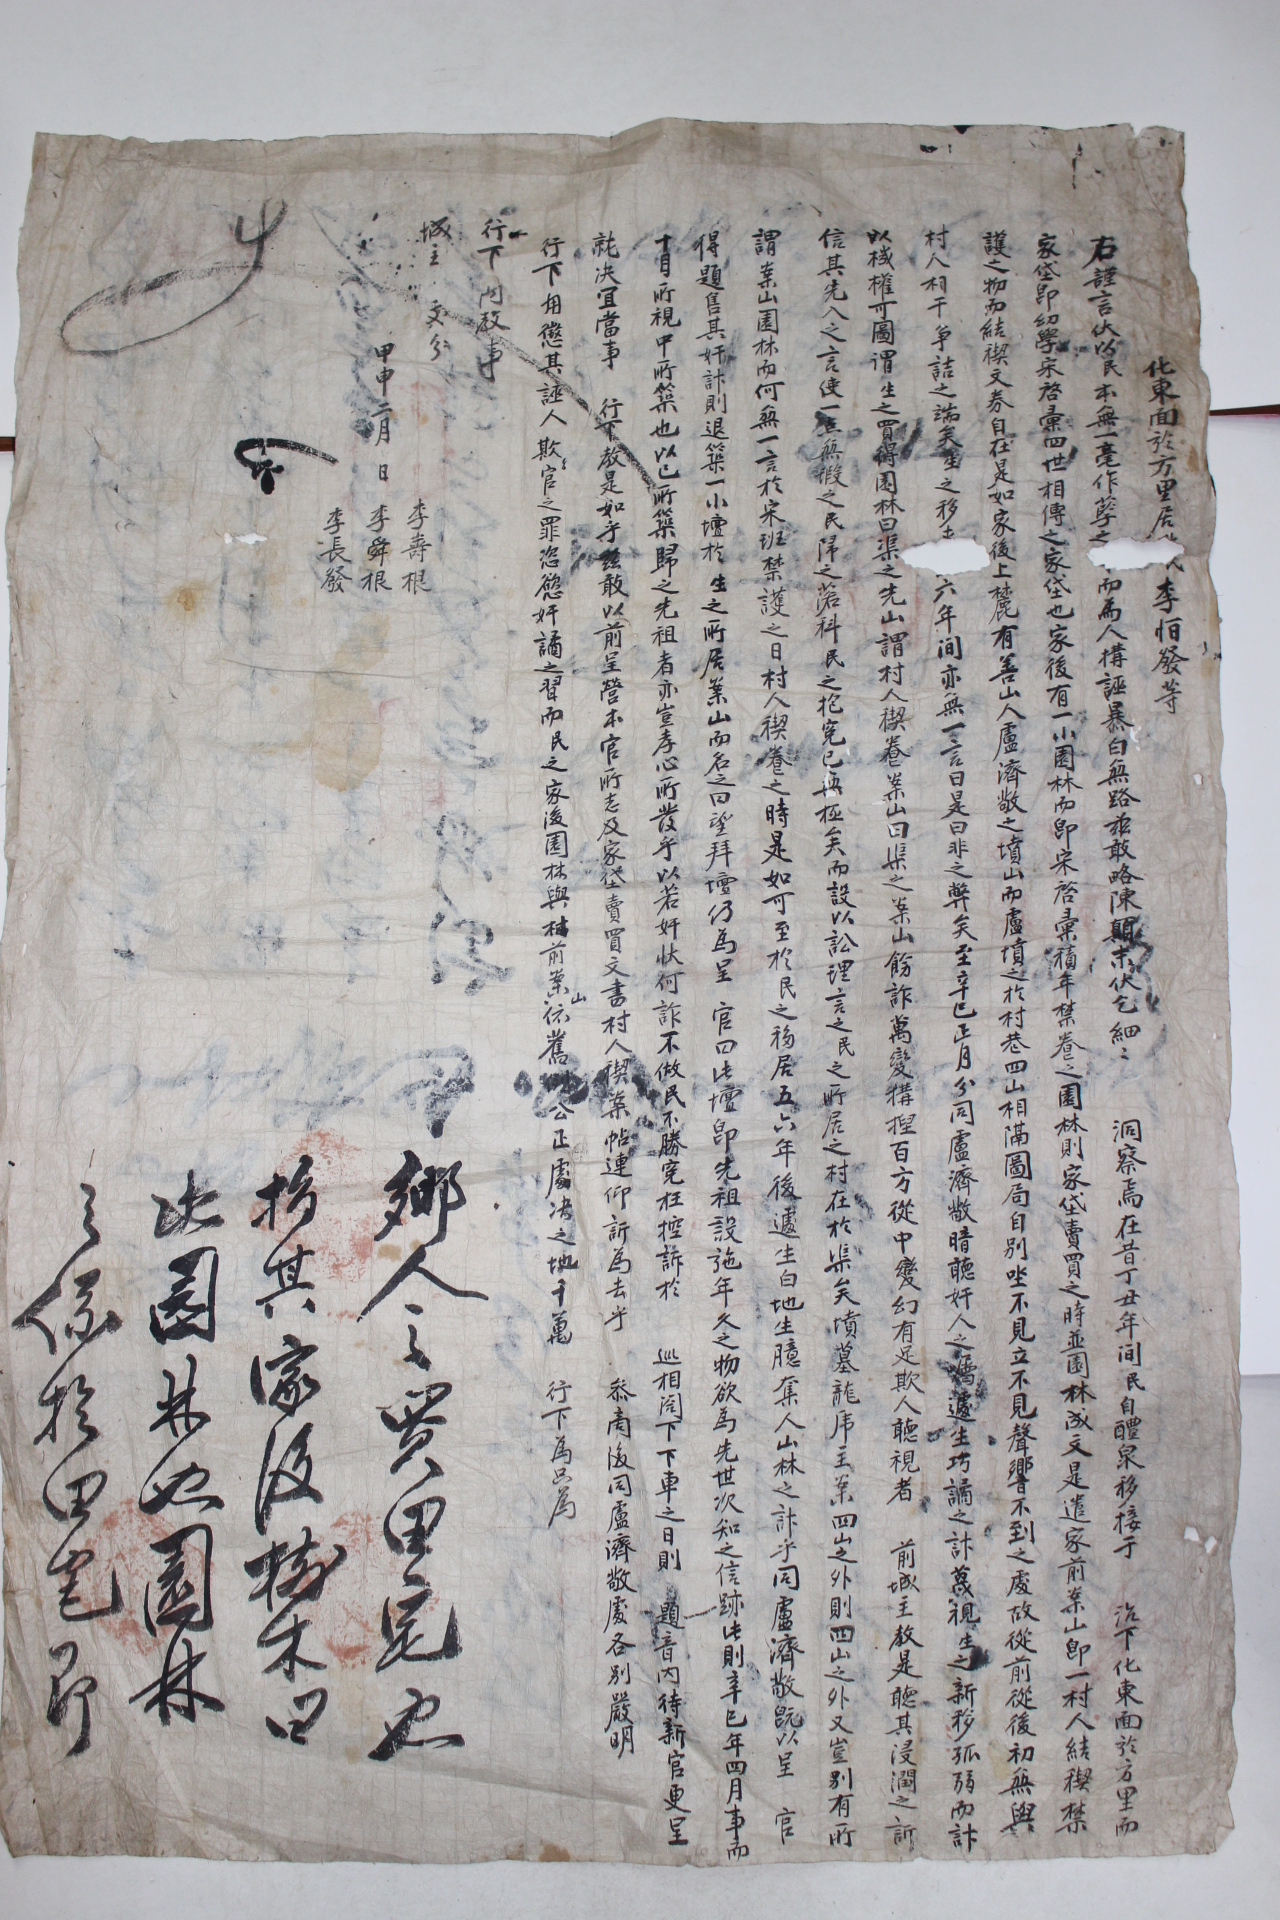 化東面於方里居 民李怕發等
右謹言伏以民本無一毫作孽之 而爲人搆誣暴白無路玆敢略陳顚末伏乞細〻 洞察焉在昔丁丑年間民自醴泉移接于 治下化東面於方里而
家垈卽幼學宋啓彙四世相傳之家垈也家後有一小園林而卽宋啓彙積年禁養之園林則家垈賣買之時並園林成文是遣家前案山卽一村人結稧禁
護之物而結稧文券自在是如家後上麓有善山人盧濟敬之墳山而盧墳之於村巷四山相隔圖局自別坐不見立不見聲響不到之處故從前從後初無與
村人相干爭詰之端矣生之移 六年間亦無一言曰是曰非之弊矣至辛巳正月分同盧濟敬暗聽奸人之囑遽生巧譎之計蔑視生之新移孤弱而計
以械權可圖謂生之買得園林曰渠之先山謂村人稧養案山曰渠之案山飾詐萬變搆捏百方從中變幻有足欺人聽視者 前城主敎是聽其浸潤之訴
信其先入之言使一無瑕之民歸之落科民之抱寃已無極矣而設以訟理言之民之所居之村在於渠矣墳墓龍虎主案四山之外則四山之外又豈別有所
謂案山園林而何無一言於宋班禁護之日村人稧養之時是如可至於民之移居五六年後遽生白地生臆奪人山林之計乎同盧濟敬旣以呈 官
得題售其奸計則退築一小壇於生之所居案山而名之曰望拜壇仍爲呈 官曰此壇卽先祖設施年久之物欲爲先世次知之信跡此則辛巳年四月事而
十目所視中所築也以已所築歸之先祖者亦豈孝心所發乎以若奸怢何詐不做民不勝寃枉控訴於 巡相閤下下車之日則 題音內待新官更呈
就決宜當事 行下敎是如乎玆敢以前呈營本官所志及家垈賣買文書村人稧案帖連仰訴爲去乎 叅商後同盧濟敬處各別嚴明
行下用懲其誣人欺官之罪恣慾奸譎之習而民之家後園林與村前案山依舊 公正處決之地千萬 行下爲只爲
行下向敎事
城主 處分
甲申二月 日 李壽根
李舜根
李長發
鄕人之買里宅也
於其家後樹木曰
此園林也園林
之係於田宅卽